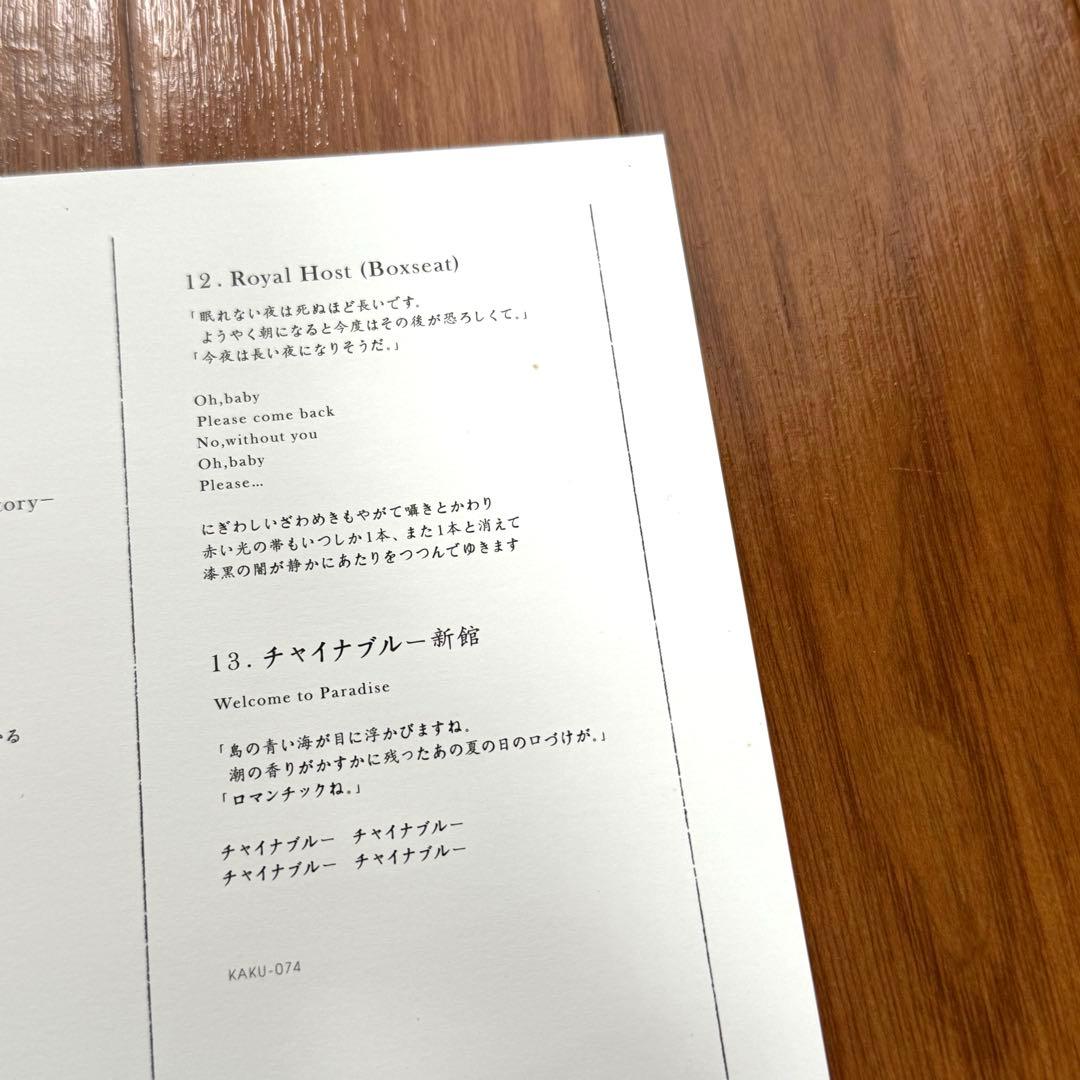 tory−
る
12. Royal Host (Boxseat)
「眠れない夜は死ぬほど長いです。
ようやく朝になると今度はその後が恐ろしくて。」
「今夜は長い夜になりそうだ。」
Oh,baby
Please come back
No,without you
Oh,baby
Please...
にぎわしいざわめきもやがて囁きとかわり
赤い光の帯もいつしか1本、また1本と消えて
漆黒の闇が静かにあたりをつつんでゆきます
13. チャイナブルー新館
Welcome to Paradise
「島の青い海が目に浮かびますね。
潮の香りがかすかに残ったあの夏の日の口づけが。」
「ロマンチックね。」
チャイナブルー　チャイナブルー
チャイナブルー　チャイナブルー
KAKU-074